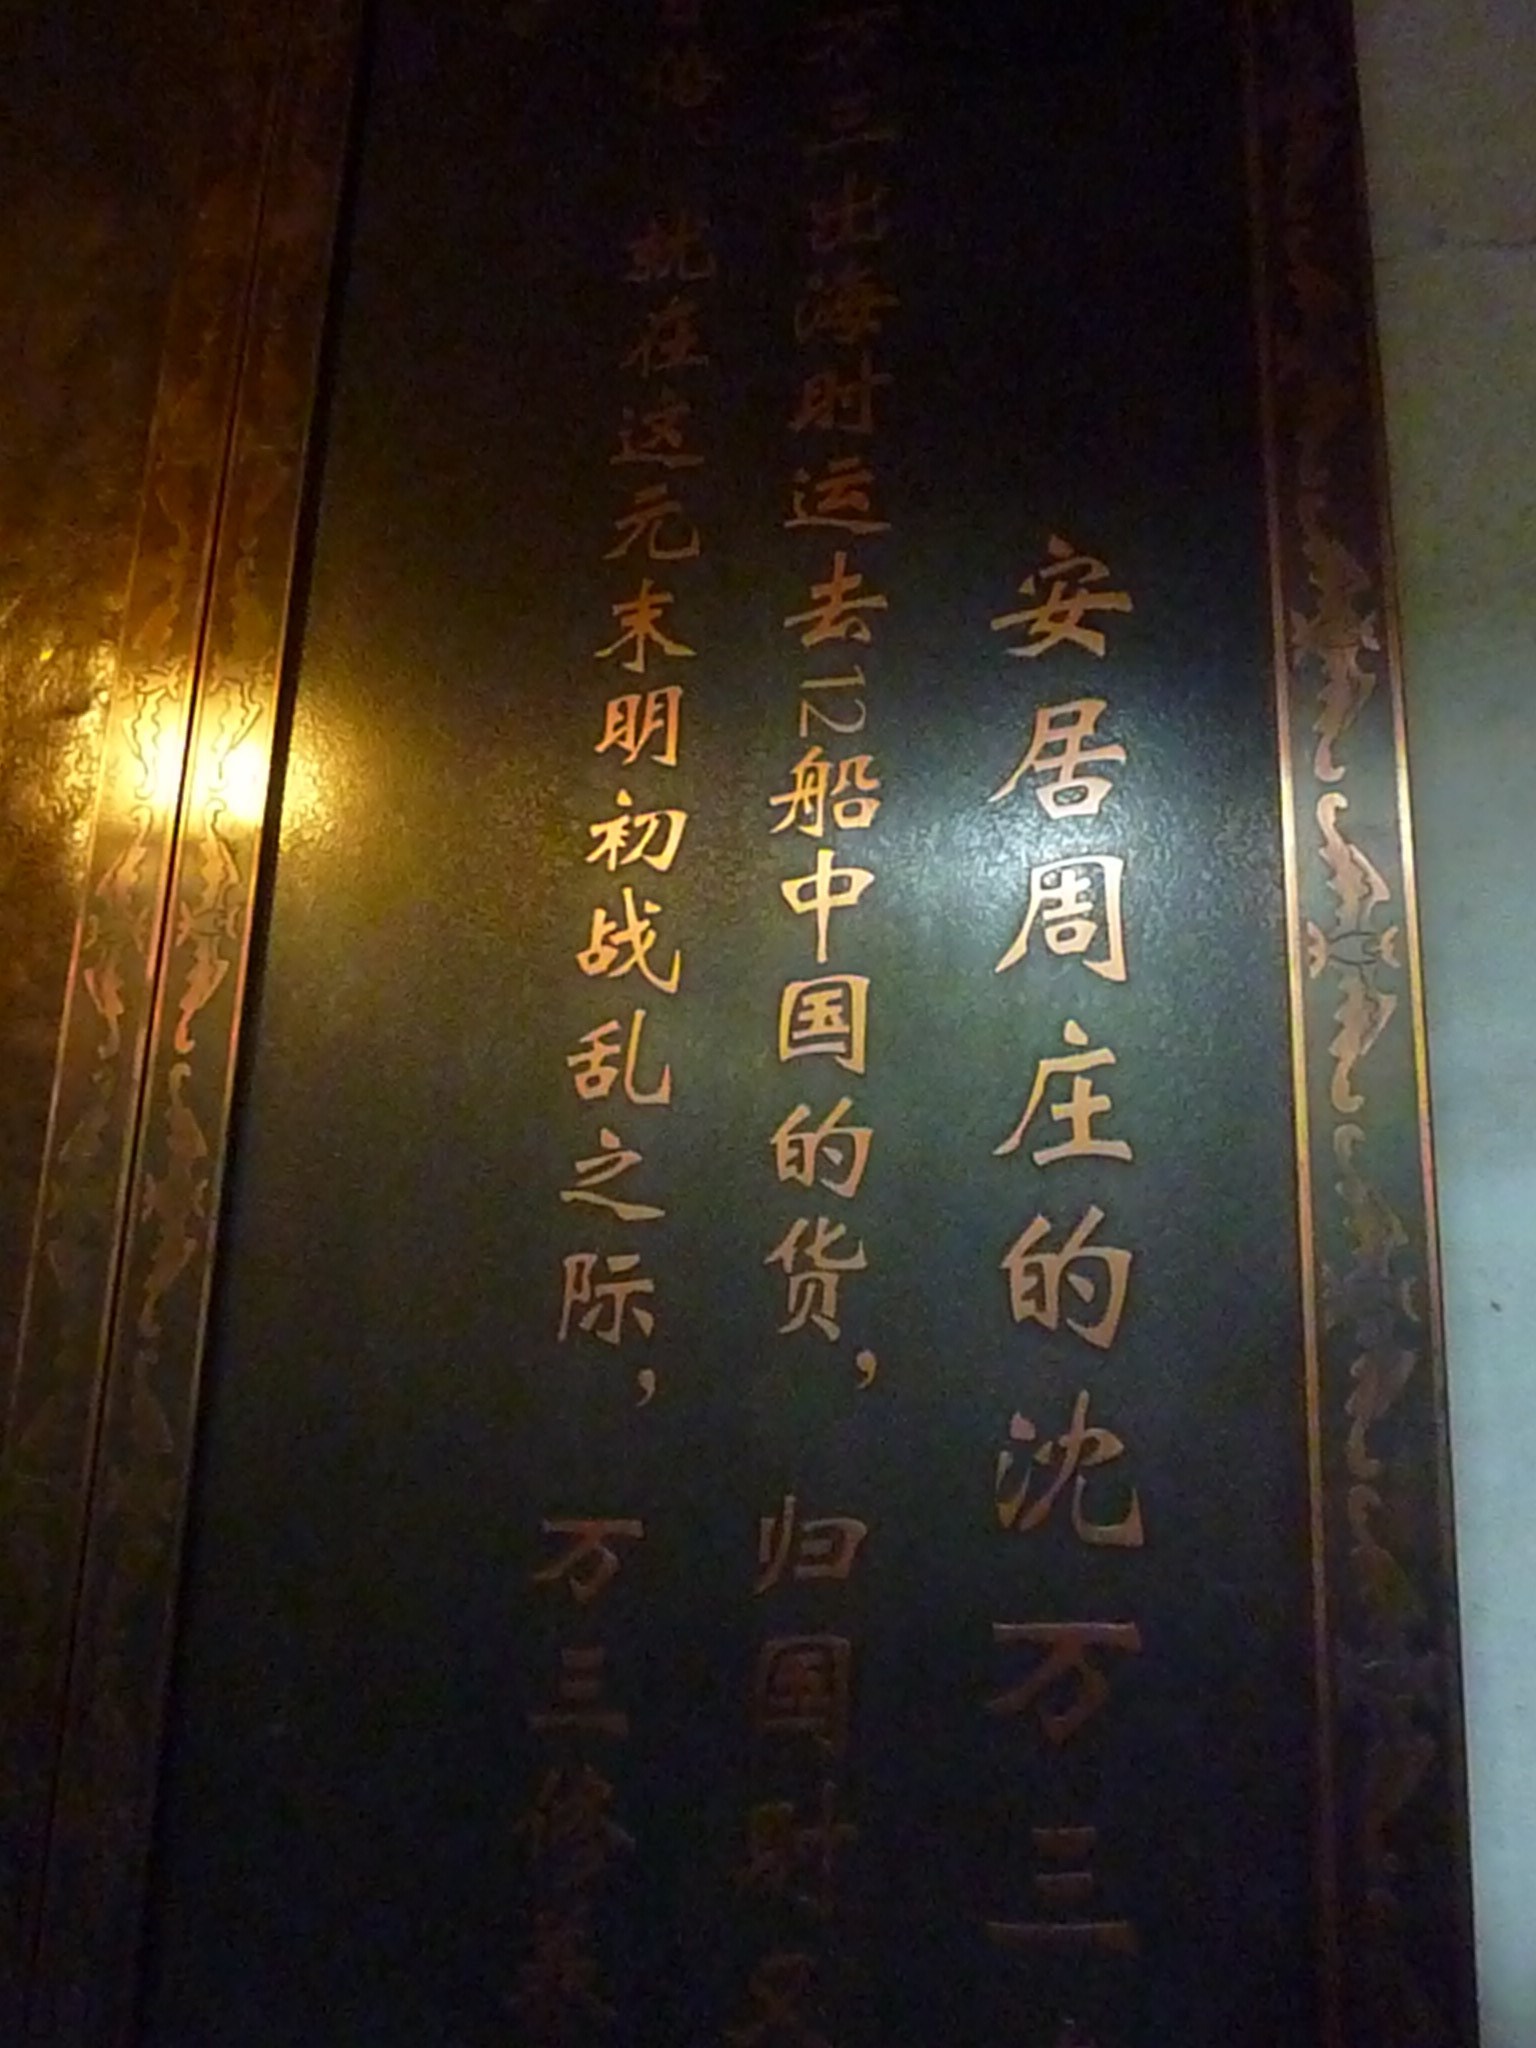 安居周庄的沈万三
万三出海时运去12船中国的货，归国时又
就在这元末明初战乱之际，万三修